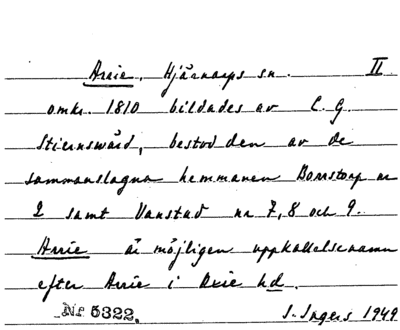 Arrie, Hjärnarps sn. II
omkr. 1810 bildades av C. G.
Stiernswärd, bestod den av de
sammanslagna hemmanen Borrstorp nr
2 samt Vanstad nr 7, 8 och 9.
Arrie är möjligen uppkallelsenamn
efter Arrie i Oxie hd.
Nr 5322. I. Ingers 1949